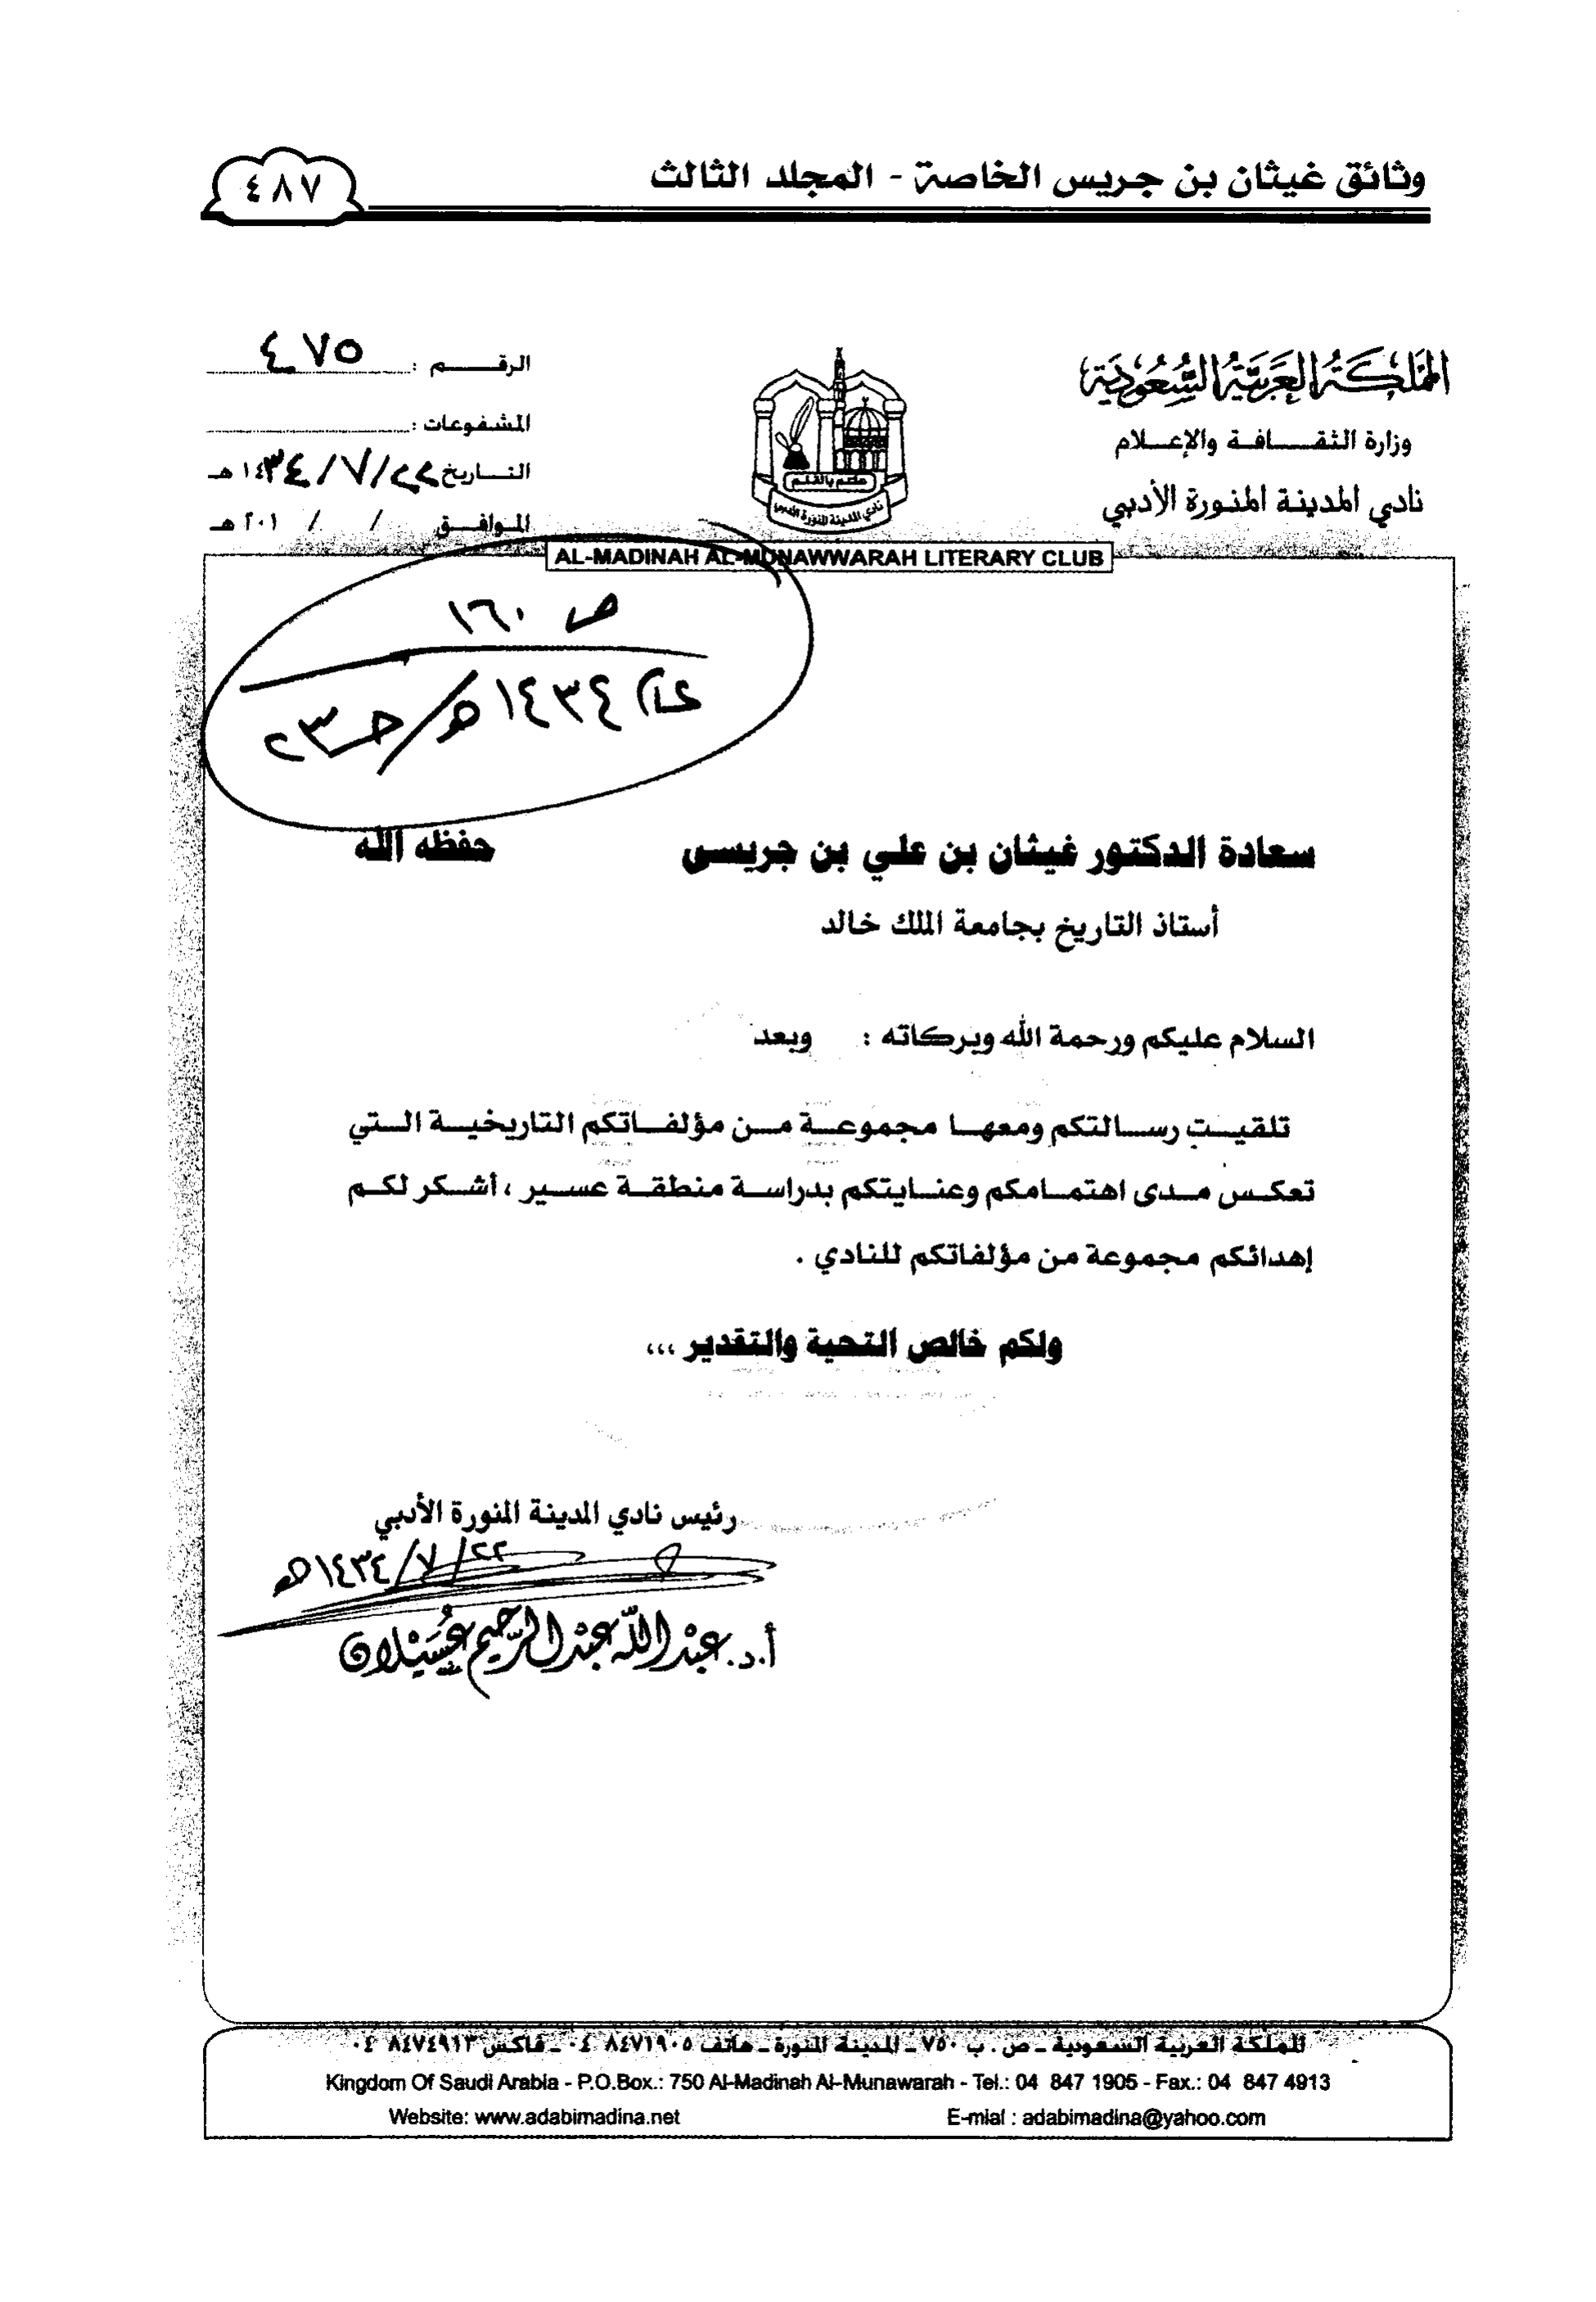 وثائق غيثان بن جريس الخاصة - المجلد الثالث
٤٨٧
المملكة العربية السعودية
وزارة الثقافة والإعلام
نادي المدينة المنورة الأدبي
الرقم : ٤٧٥
المشفوعات :
التاريخ ٢٢/٧/١٤٣٤ هـ
الموافق / / ٢٠١ هـ
علم بالقلم
نادي المدينة المنورة الأدبي
AL-MADINAH AL-MUNAWWARAH LITERARY CLUB
ص ١٦٠
١٤٣٤ هـ/حـ ٢٣
سعادة الدكتور غيثان بن علي بن جريسي حفظه الله
أستاذ التاريخ بجامعة الملك خالد
السلام عليكم ورحمة الله وبركاته : وبعد
تلقيت رسالتكم ومعها مجموعة من مؤلفاتكم التاريخية التي
تعكس مدى اهتمامكم وعنايتكم بدراسة منطقة عسير ، أشكر لكم
إهدائكم مجموعة من مؤلفاتكم للنادي .
ولكم خالص التحية والتقدير ،،،
رئيس نادي المدينة المنورة الأدبي
٢٢/٧/١٤٣٤هـ
أ.د. عبدالله عبدالرحيم عسيلان
المملكة العربية السعودية ـ ص . ب ٧٥٠ ـ المدينة المنورة ـ هاتف ٨٤٧١٩٠٥ ٠٤ ـ فاكس ٨٤٧٤٩١٣ ٠٤
Kingdom Of Saudi Arabia - P.O.Box.: 750 Al-Madinah Al-Munawarah - Tel.: 04 847 1905 - Fax.: 04 847 4913
Website: www.adabimadina.net E-mial : adabimadina@yahoo.com